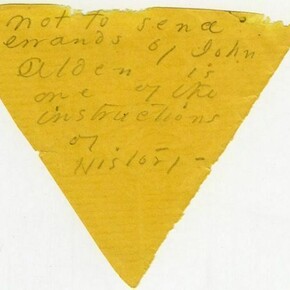 not to send
errands by John
Alden is
one of the
instructions
of
History -